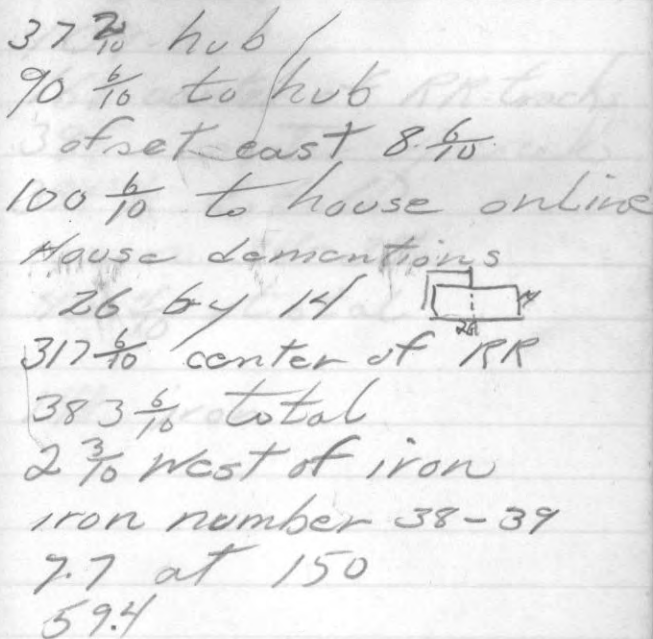 37 2/10 hub
90 6/10 to hub
ofset east 8. 6/10
100 6/10 to house online
House demantions
26 by 14
26 14
317 6/10 center of RR
383 6/10 total
2 3/10 West of iron
iron number 38-39
7.7 at 150
59.4